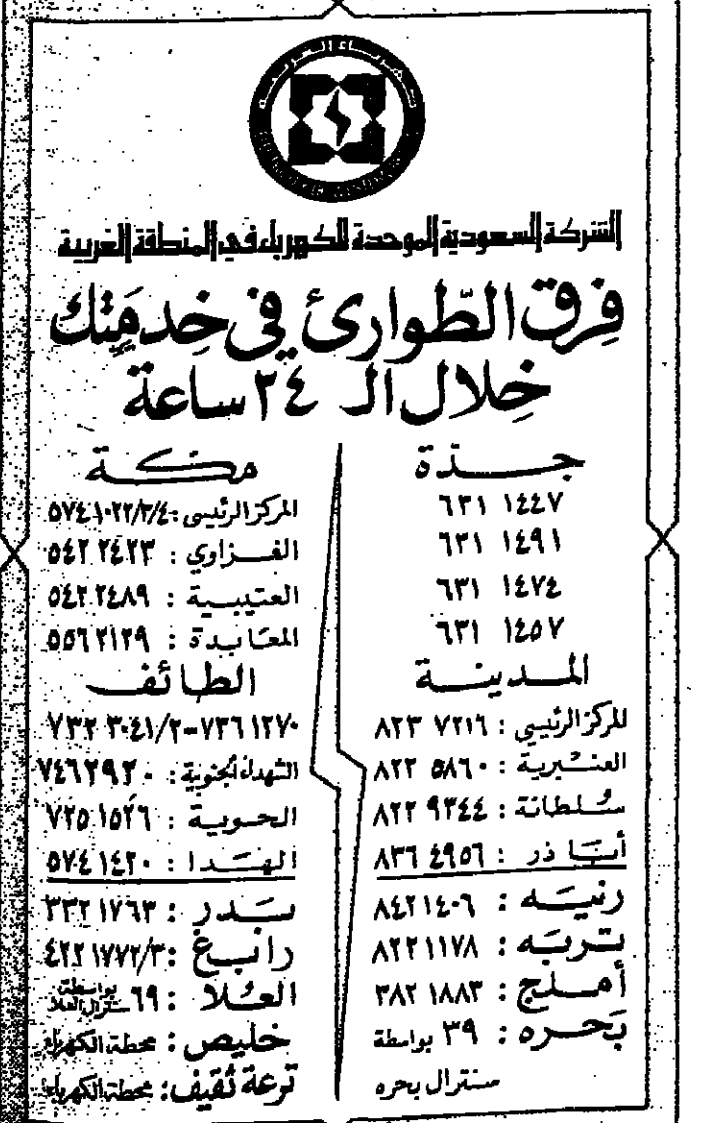 الشركة السعودية الموحدة للكهرباء في المنطقة الغربية
فِرق الطّوارئ في خِدمَتك
خِلال الـ ٢٤ ساعة
جـــدّة
٦٣١ ١٤٤٧
٦٣١ ١٤٩١
٦٣١ ١٤٧٤
٦٣١ ١٤٥٧
المـدينــة
المركز الرئيسي : ٨٢٣ ٧٢١٦
العنـبرية : ٨٢٢ ٥٨٦٠
سُلطانة : ٨٢٢ ٩٣٤٤
أبَا ذر : ٨٣٦ ٤٩٥٦
رنيـَه : ٨٤٢١٤٠٦
تـربَه : ٨٢٢١١٧٨
أملـج : ٣٨٢ ١٨٨٣
بَحـره : ٣٩ بواسطة
سنترال بحره
مكـــة
المركز الرئيسي : ٥٧٤١٠٢٢/٣/٤
الفــزاوي : ٥٤٢ ٢٤٢٣
العتيبـية : ٥٤٢ ٢٤٨٩
المعَابدة : ٥٥٦ ٢١٢٩
الطائف
٧٣٦١٢٧٠–٧٣٢ ٣٠٤١/٢
الشهداء الجنوبية : ٧٤٦٢٩٢٠
الحـوية : ٧٢٥ ١٥٢٦
الهـَدا : ٥٧٤١٤٢٠
بـَدر : ٣٣٢١٧٦٣
رابـغ : ٤٢٢١٧٧٢/٣
العـُلا : ٦٩ بواسطة سنترال العلا
خليص : محطة الكهرباء
ترعة ثقيف : محطة الكهرباء